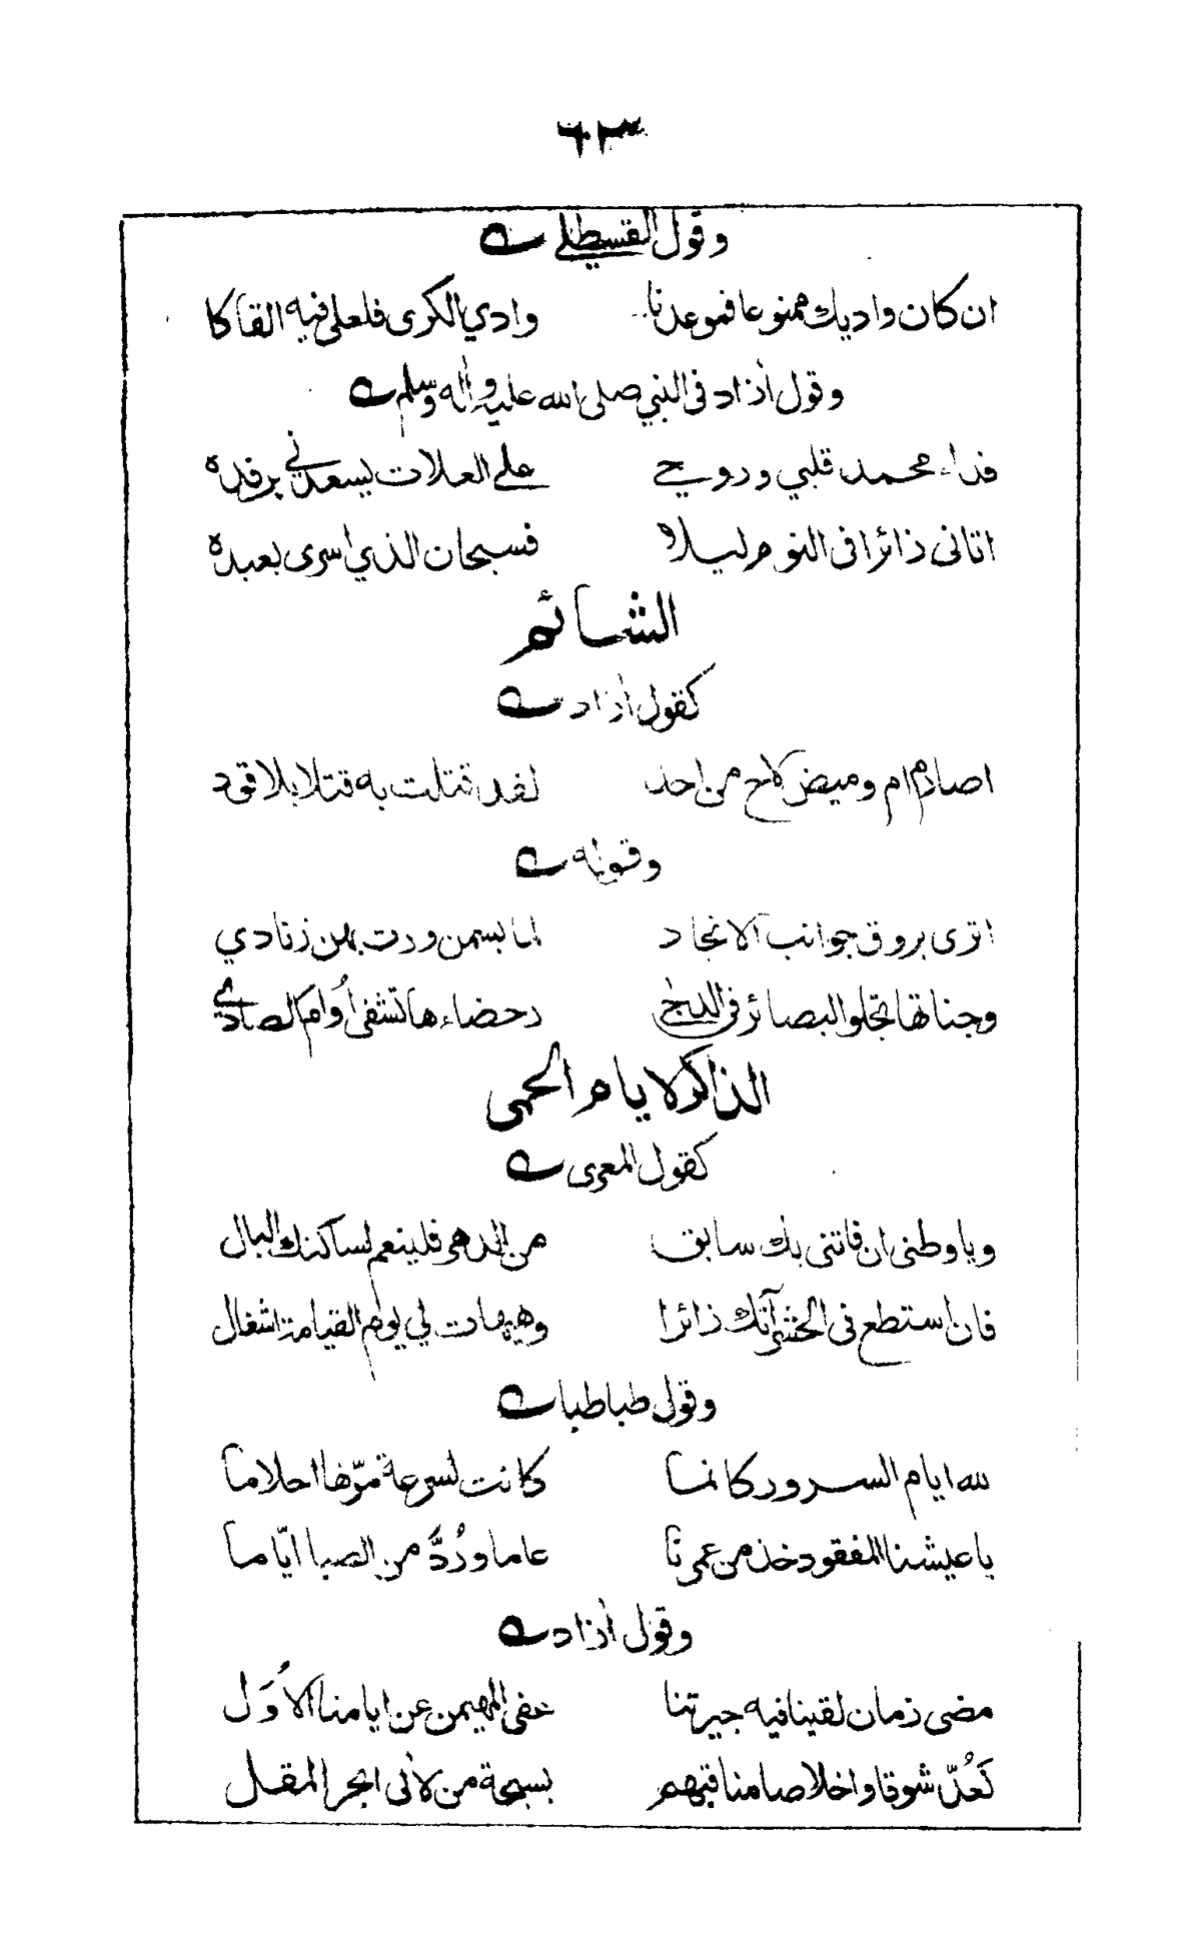 ٦٣
وقول القسطلي
ان كان واديك ممنوعا فموعدنا وادي الكرى فلعلي فيه القاكا
وقول أزاد فى النبي صلى الله عليه وأله وسلم
فداء محمد قلبي وروحي على العلات يسعدني برفده
اتانى ذائرا فى النوم ليلاً فسبحان الذي أسرى بعبده
الشائم
كقول أزاد
اصارم ام وميض لاح من احد لقد قتلت به قتلا بلا قود
وقوله
اترى بروق جوانب الانجاد لما بسمن ورت بهن زنادي
وجناتها تجلو البصائر فى الدجى رحضاءها تشفى أُوام الصادي
الذاكر لايام الحمى
كقول المعرى
ويا وطنى ان فاتنى بك سابق من الدهر فلينعم لساكنك البال
فان استطع فى الحشر آتك ذائرا وهيهات لي يوم القيامة اشغال
وقول طباطبا
لله ايام السرور كانما كانت لسرعة مرّها احلاما
يا عيشنا المفقود خذ من عمرنا عاما ورُدَّ من الصبا ايّاما
وقول أزاد
مضى زمان لقينا فيه جيرتنا عفى المهيمن عن ايامنا الأُوَل
نَعُدّ شوقا واخلاصا مناقبهم بسبحة من لألى ابحر المقل